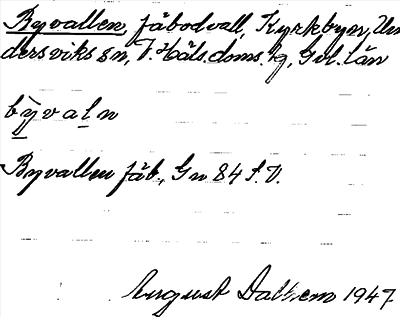 Byvallen, fäbodvall, Kyrkbyn, Un
dersviks sn, V. Häls. doms. hg, Gvl. län
bỳvaln
Byvallen fäb., Gn 84 S.V.
August Dalhem 1947